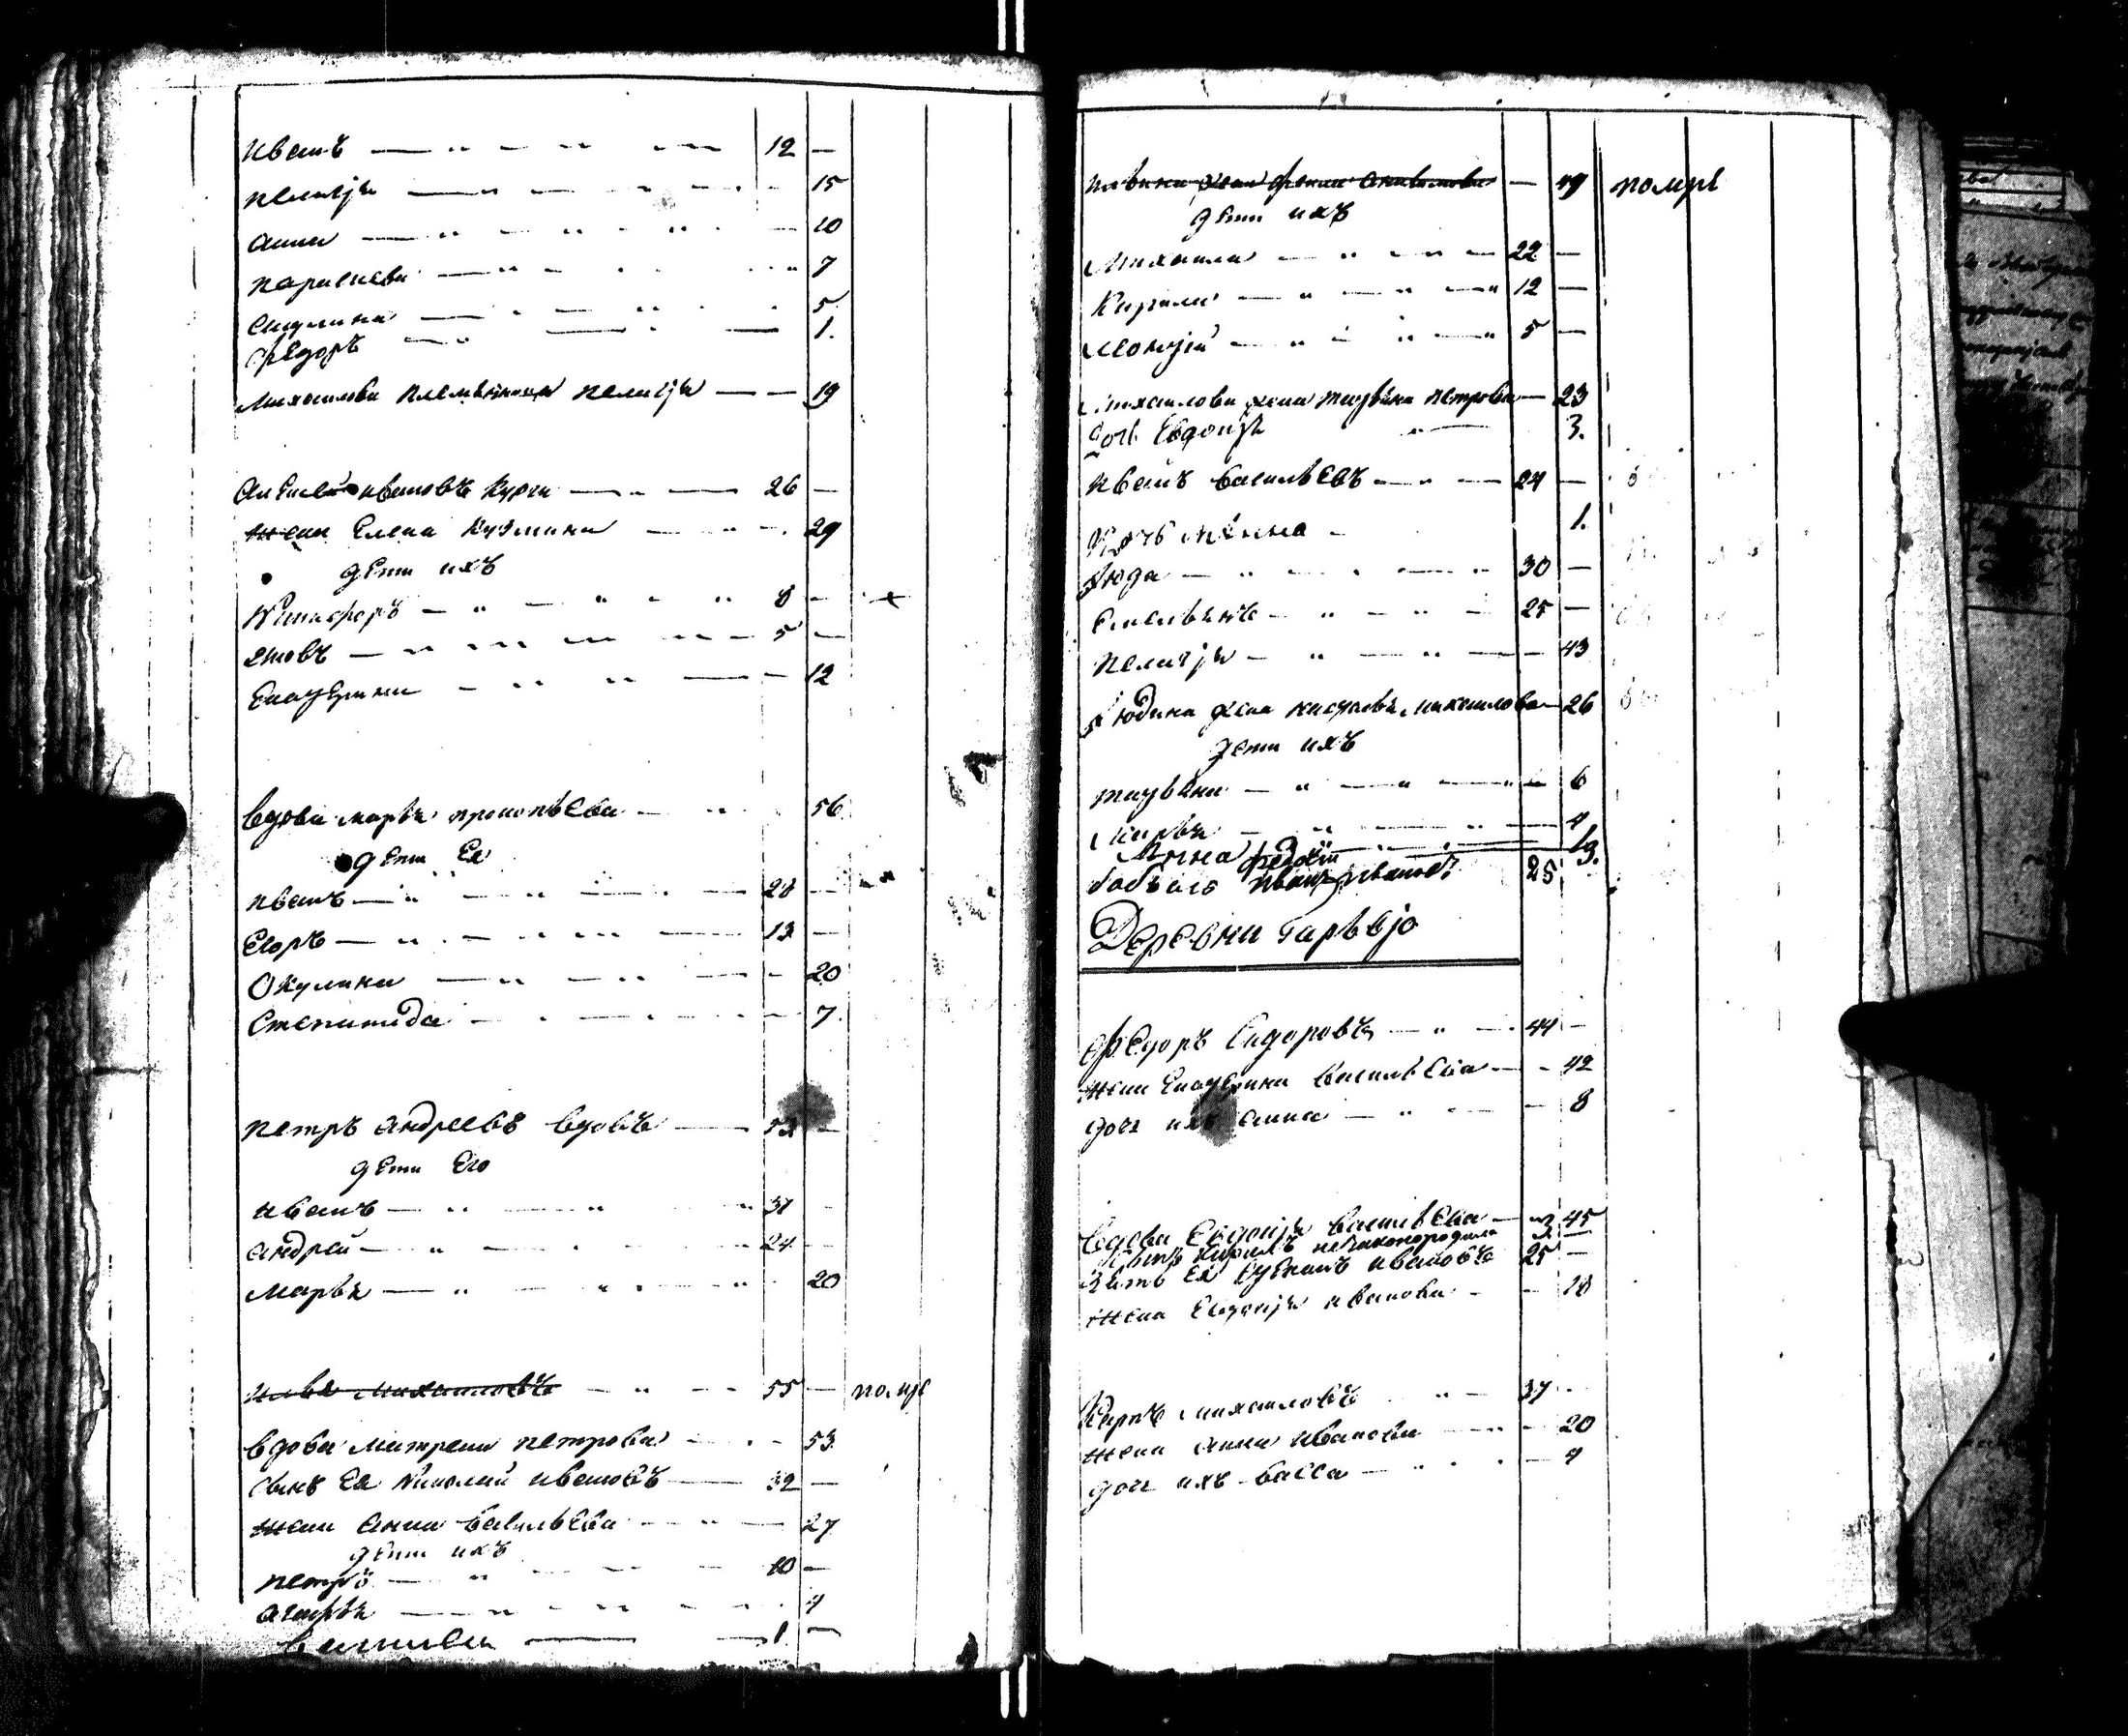 иванъ 12 —
пелагiя 15
анна 10
параскева 7
окулина 5
федоръ 1.
Михаилова племянница пелагiя 19
ивановъ 26 —
жена Елена кузмина 29
дети ихъ
Никифоръ 8 —
яковъ 5 —
Екатерина 12
вдова марья прокопьева 56
дети Ея
иванъ —
Егоръ 13 —
Окулина 20
Степанида 7
петръ андреевъ вдовъ —
дети Его
иванъ 31
андрей 24
марья 20
илья Михаиловъ 55 — помре
вдова матрена петрова 53
сынъ Ея Николай ивановъ 32 —
жена анна васильева 27
дети ихъ
петръ 10 —
агафья 4
1 —
жена 49 помре
дети ихъ
Михаила 22 —
Кирила 12 —
леонтiй 5 —
Михаилова жена татьяна петрова 23
дочь Евдокiя 3.
иванъ васильевъ 24 —
дочь 1.
Iюда 30 —
Емельянъ 25 —
пелагiя 43
Iюдина жена наталья михаилова 26
дети ихъ
татьяна 6
марья 4
Анна
бобыль федотъ иванъ ивановъ 25
Деревни
Федоръ Сидоровъ 44 —
жена Екатерина васильева 42
дочь ихъ анна 8
вдова Евдокiя васильева 45
сынъ кирилъ незаконорожден
зять Ея ивановъ 25 —
жена Евдокiя иванова 18
Карпъ михаиловъ 37
жена анна иванова 20
дочь ихъ васса 4